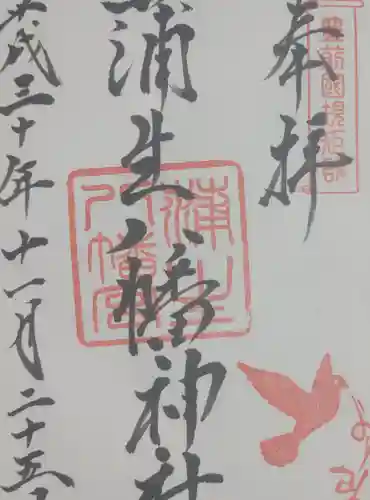 奉拝
豊前國規矩郡
蒲生八幡神社
蒲生八幡宮
平成三十年十一月二十五日